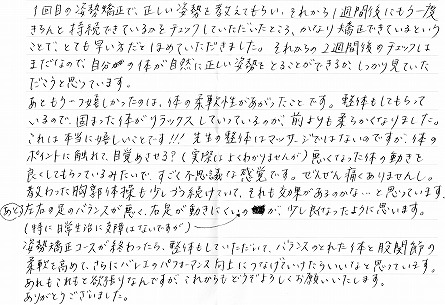 1回目の姿勢矯正で、正しい姿勢を教えてもらい、それから1週間後にもう一度
きちんと持続できているかをチェックしていただいたところ、かなり矯正できているという
ことで、とても早い方だとほめていただきました。それからの2週間後のチェックは
まだなので、自分の体が自然に正しい姿勢をとることができるか、しっかり見ていた
だこうと思っています。
あともう一つ嬉しかったのは、体の柔軟性があがったことです。整体もしてもらって
いるので、固まった体がリラックスしていっているのか、前よりも柔らかくなりました。
これは本当に嬉しいことです!!! 先生の整体はマッサージではないのですが、体の
ポイントに触れて、目覚めさせる?(実際はよくわかりませんが)悪くなった体の動きを
良くしてもらっているみたいで、すごく不思議な感覚です。ぜんぜん痛くありませんし。
教わった胸部体操も少しづつ続けていて、それも効果があるのかな…と思っています。
あとは左右の足のバランスが悪く、右足が動きにくいのが、少し良くなったように思います。
(特に日常生活に支障はないですが)
姿勢矯正コースが終わったら、整体もしていただいて、バランスのとれた体と股関節の
柔軟を高めて、さらにバレエのパフォーマンス向上につなげていけたらいいなと思っています。
あれもこれもと欲張りなんですが、これからもどうぞよろしくお願いいたします。
ありがとうございました。